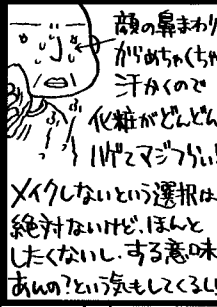 顔の鼻まわり
がめちゃくちゃ
汗かくので
化粧がどんどん
ハゲてマジつらい!
ふぅ
ふぅ
メイクしないという選択は
絶対ないけど、ほんと
したくないし、する意味
あんの?という気もしてくるし